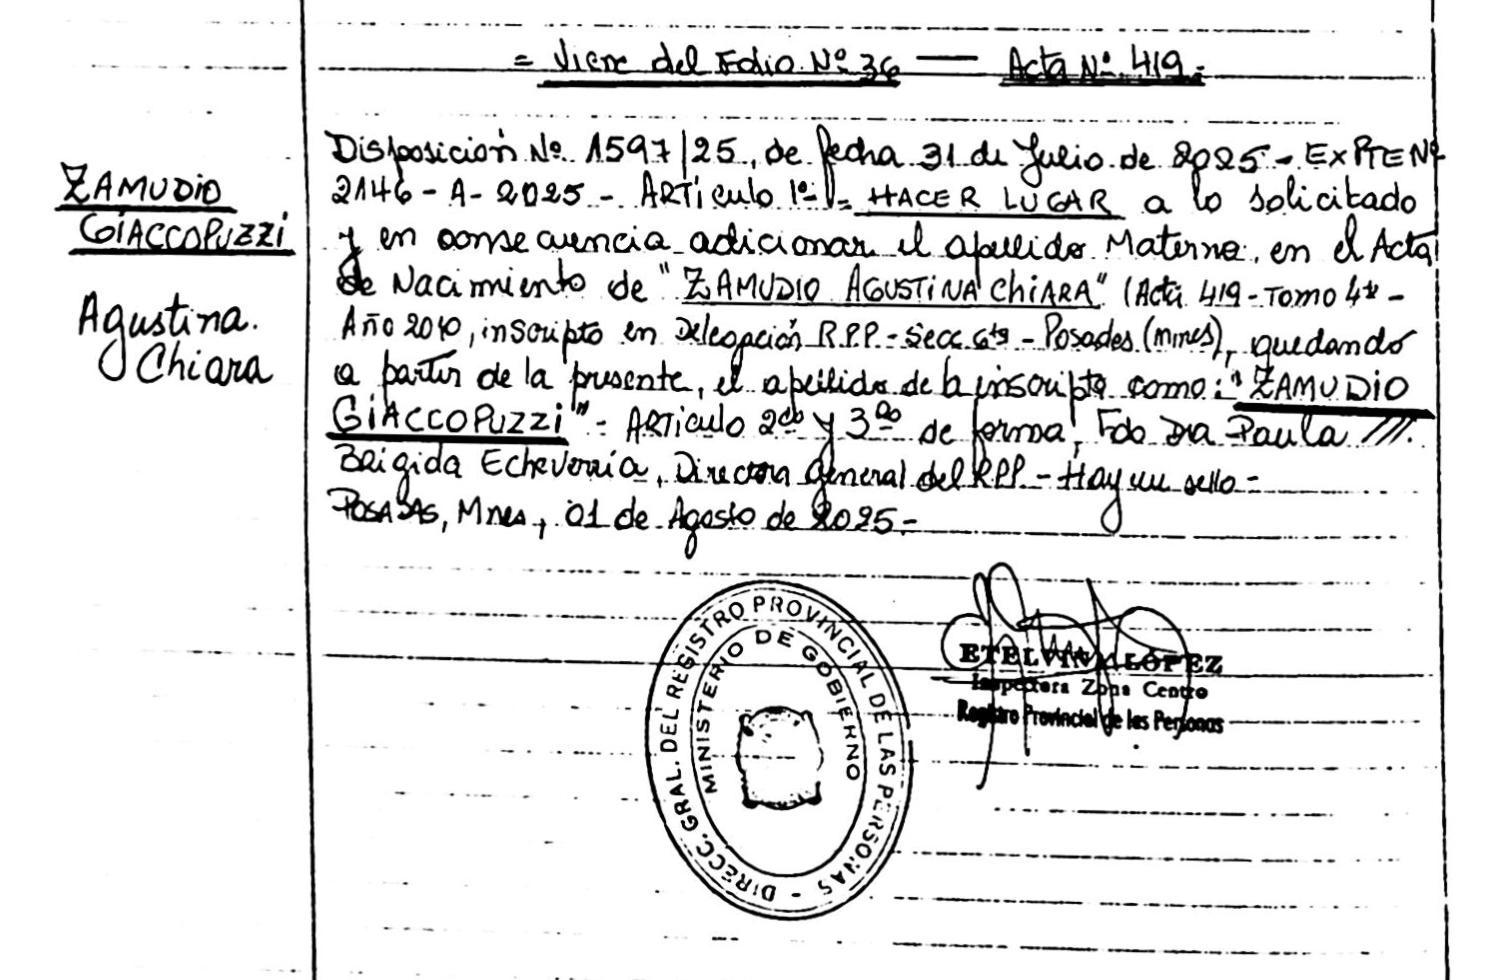 = Viene del Folio Nº 36 — Acta Nº 419.=
ZAMUDIO
GIACCOPUZZI
Agustina.
Chiara
Disposición Nº 1597/25, de fecha 31 de Julio de 2025 - EXPTE Nº
2146 - A - 2025 - ARTículo 1º = HACER LUGAR a lo solicitado
y en consecuencia adicionar el apellido Materno, en el Acta
de Nacimiento de "ZAMUDIO AGUSTINA CHiARA" (Acta 419 - Tomo 4º -
Año 2010, inscripto en Delegación R.P.P. - Secc 6ta - Posadas (mnes), quedando
a partir de la presente, el apellido de la inscripta como: "ZAMUDIO
GIACCOPUZZI" - ARTiculo 2do y 3ero de forma, Fdo Dra Paula ///.
Brigida Echeverría, Directora General del RPP - Hay un sello -
POSADAS, Mnes, 01 de Agosto de 2025 -
DIRECC. GRAL. DEL REGISTRO PROVINCIAL DE LAS PERSONAS -
MINISTERIO DE GOBIERNO
ETELVINA LÓPEZ
Inspectora Zona Centro
Registro Provincial de las Personas